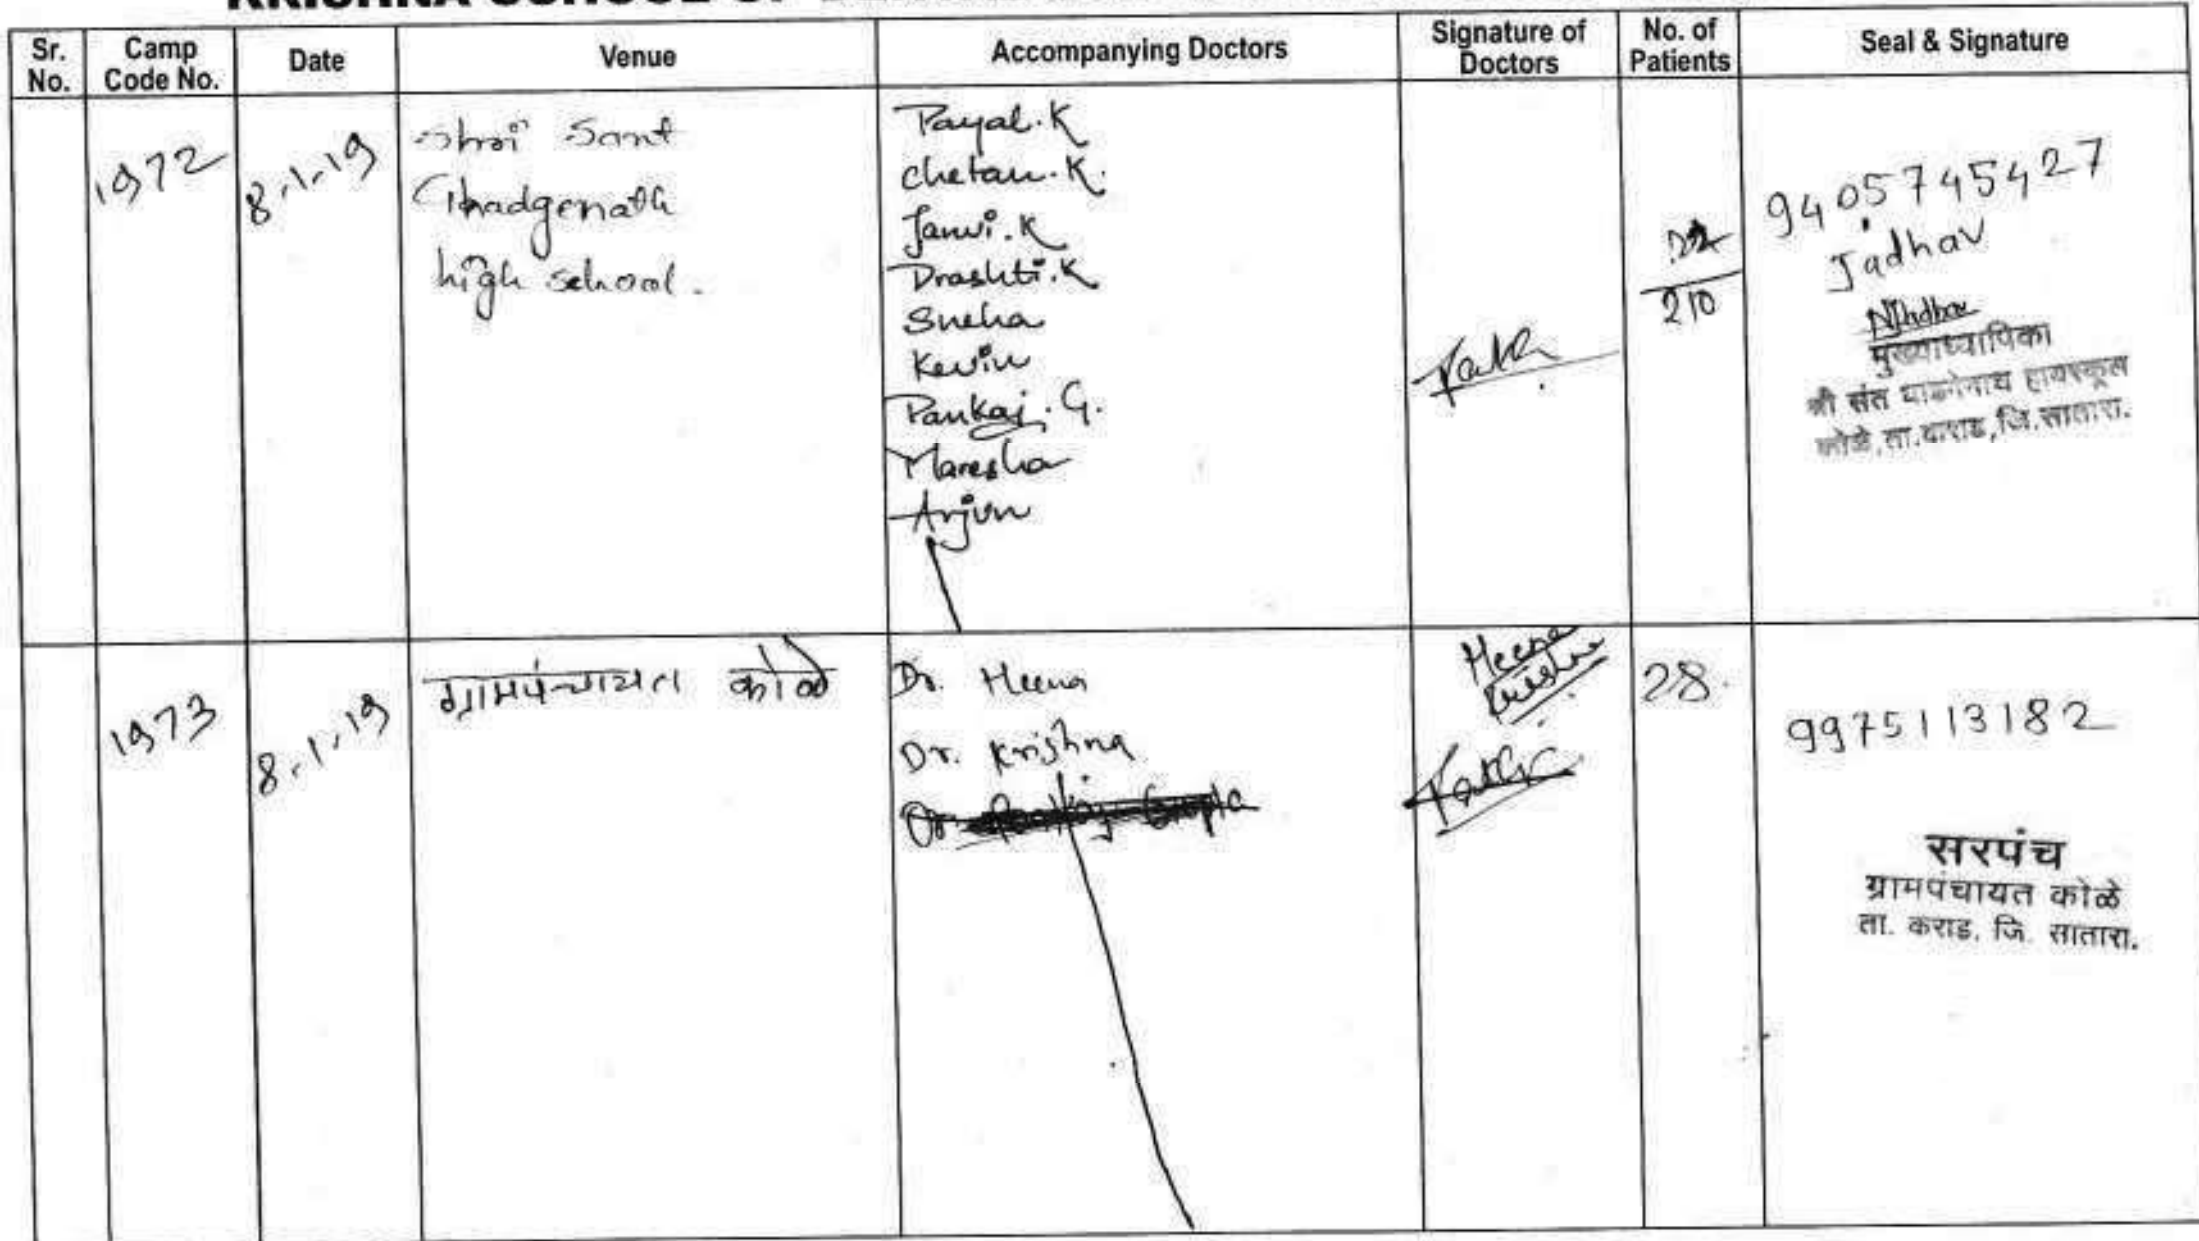 KRISHNA SCHOOL OF
Sr. No.
Camp Code No.
Date
Venue
Accompanying Doctors
Signature of Doctors
No. of Patients
Seal & Signature
1972
8.1.19
Shri Sant
Ghadgenath
high school.
Payal.K
chetan.K.
Janvi.K
Drashti.K
Sneha
Kevin
Pankaj.G.
Maresha
Arjun
210
9405745427
Jadhav
मुख्याध्यापिका
श्री संत घाडगेनाथ हायस्कूल
कोळे,ता.कराड,जि.सातारा.
1973
8.1.19
ग्रामपंचायत कोळे
Dr. Heena
Dr. Krishna
Heena
Krishna
28.
9975113182
सरपंच
ग्रामपंचायत कोळे
ता. कराड. जि. सातारा.